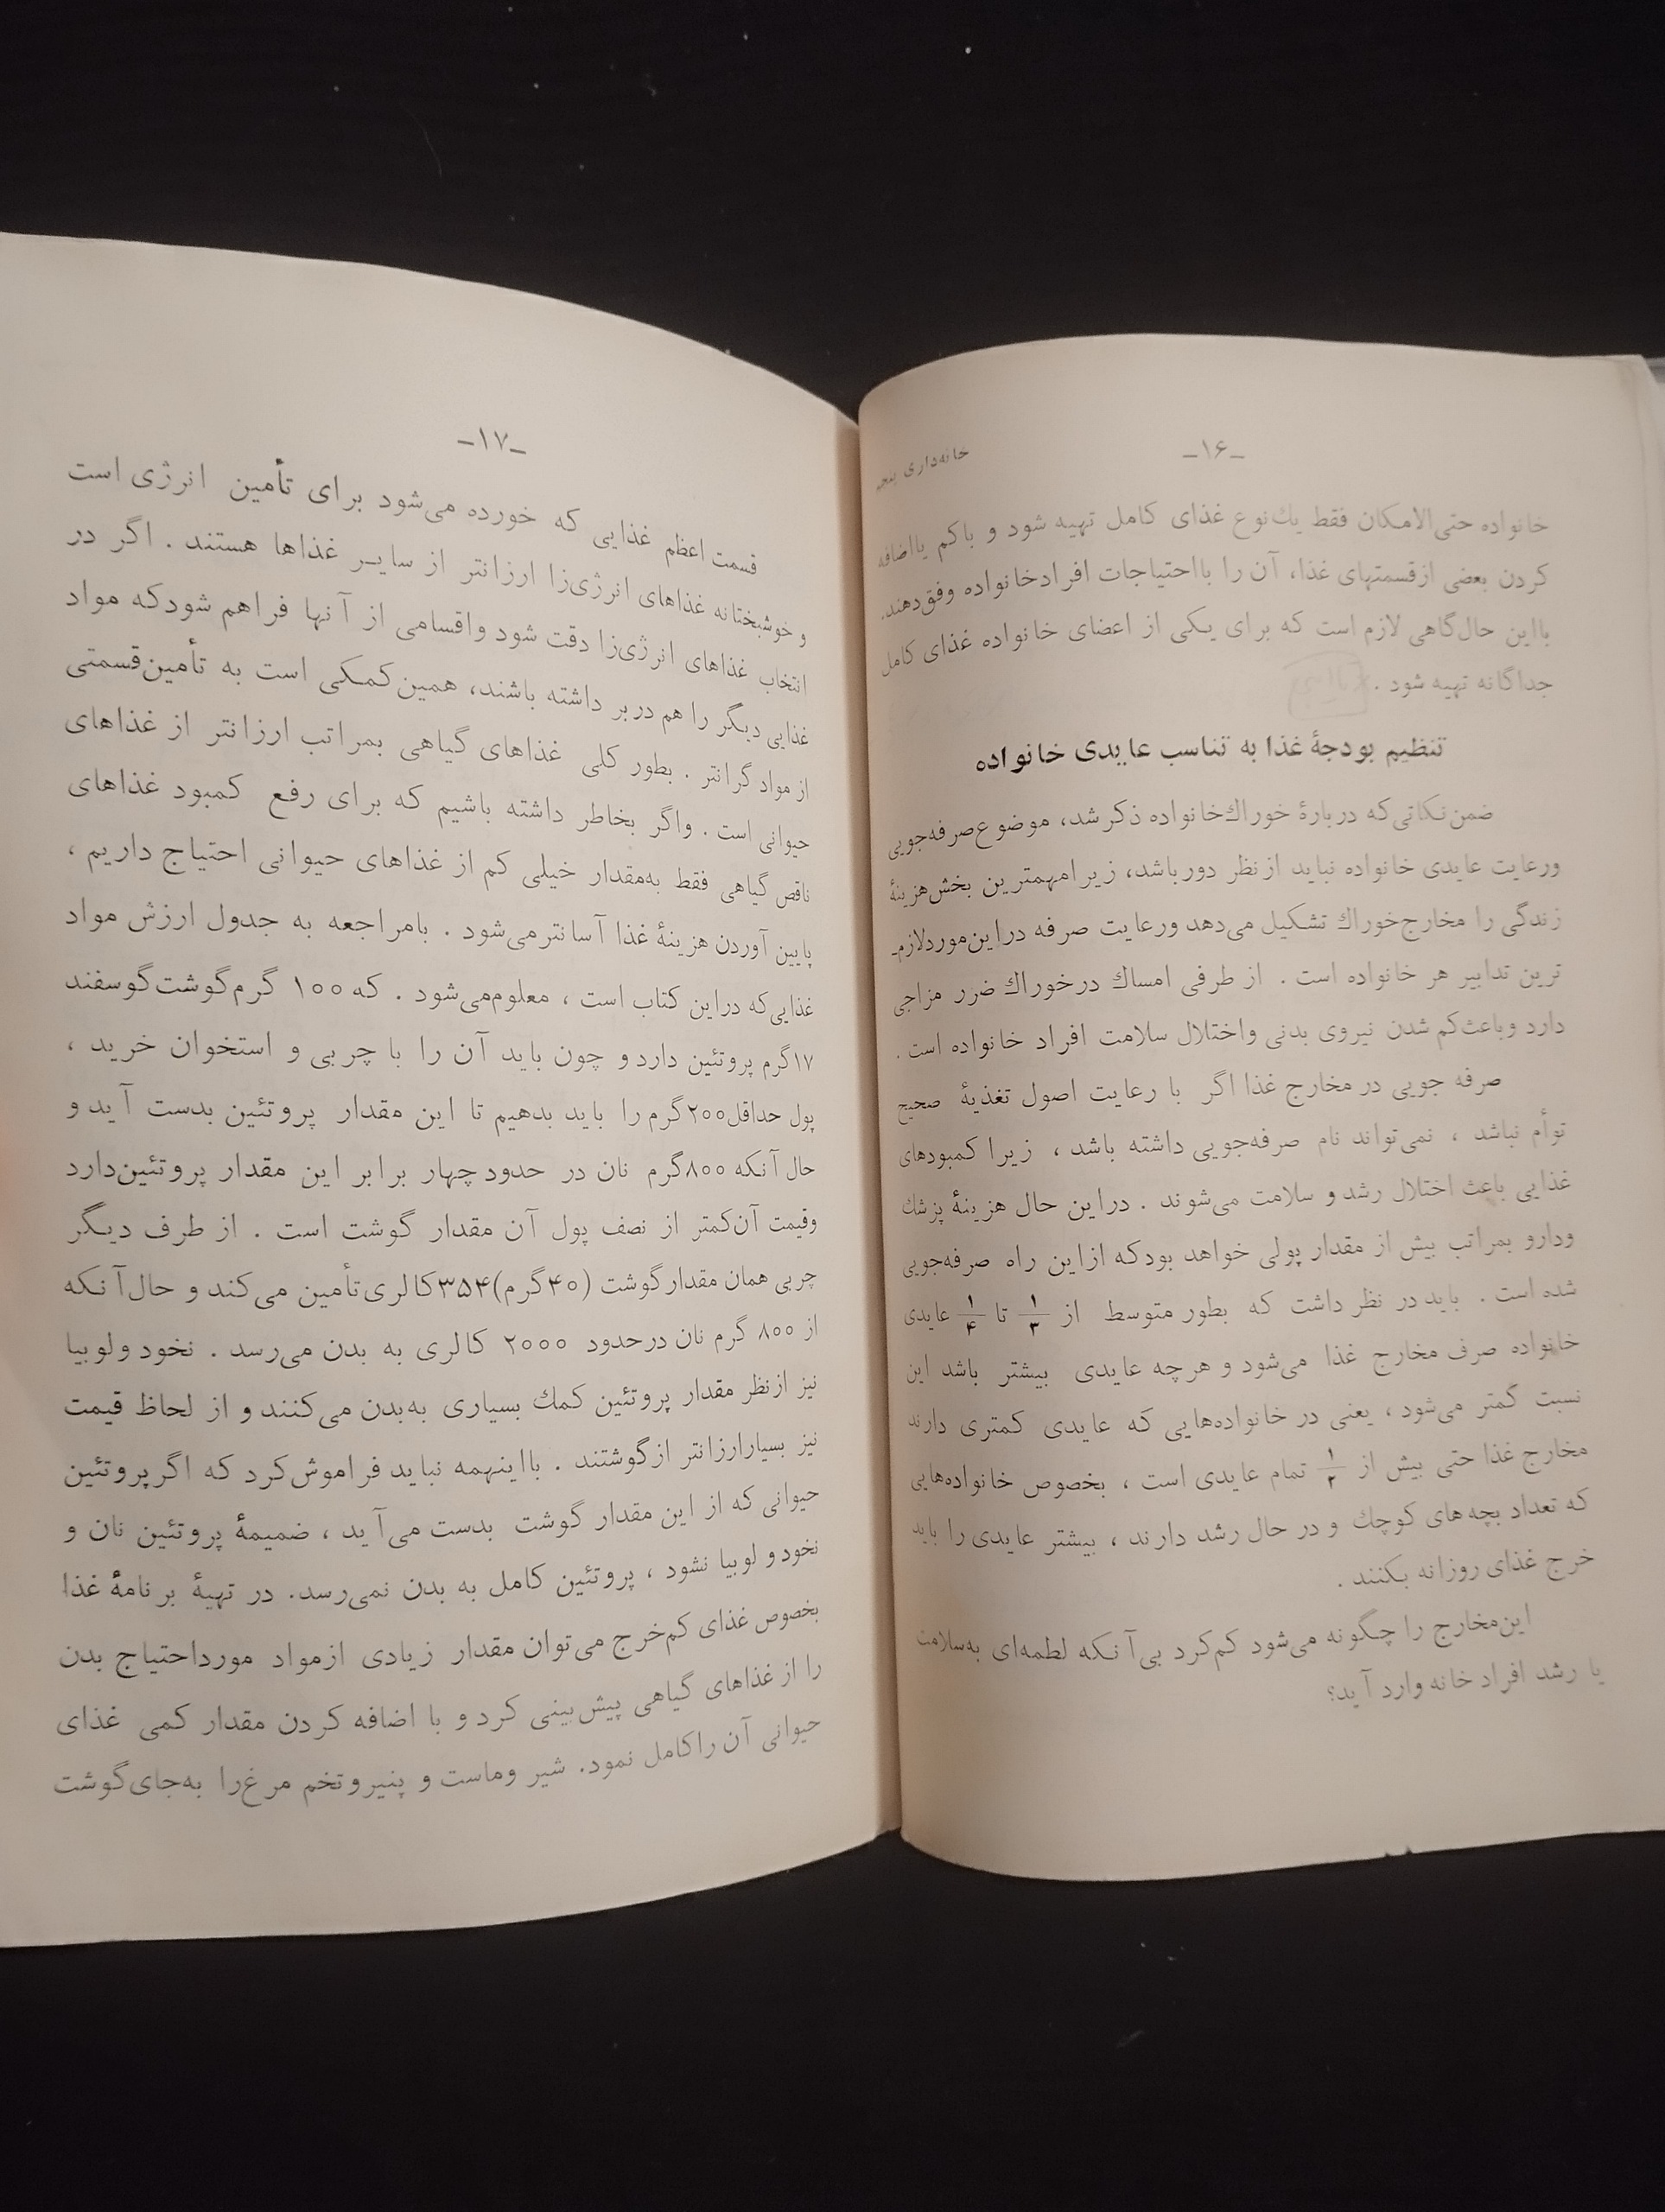 -۱۶-
خانه‌داری پنجم
خانواده حتی‌الامکان فقط یك نوع غذای کامل تهیه شود و باکم یااضافه
کردن بعضی ازقسمتهای غذا، آن را بااحتیاجات افرادخانواده وفق‌دهند.
بااین حال‌گاهی لازم است که برای یکی از اعضای خانواده غذای کامل
جداگانه تهیه شود .
تنظیم بودجهٔ غذا به تناسب عایدی خانواده
ضمن نکاتی‌که دربارهٔ خوراك‌خانواده ذکرشد، موضوع‌صرفه‌جویی
ورعایت عایدی خانواده نباید ازنظر دورباشد، زیرا مهمترین بخش‌هزینهٔ
زندگی را مخارج‌خوراك تشکیل می‌دهد ورعایت صرفه دراین‌موردلازم-
ترین تدابیر هر خانواده است . از طرفی امساك درخوراك ضرر مزاجی
دارد وباعث‌کم شدن نیروی بدنی واختلال سلامت افراد خانواده است .
صرفه جویی در مخارج غذا اگر با رعایت اصول تغذیهٔ صحیح
توأم نباشد ، نمی‌تواند نام صرفه‌جویی داشته باشد ، زیرا کمبودهای
غذایی باعث اختلال رشد و سلامت می‌شوند . دراین حال هزینهٔ پزشك
ودارو بمراتب بیش از مقدار پولی خواهد بودکه ازاین راه صرفه‌جویی
شده است . باید در نظر داشت که بطور متوسط از ۱/۳ تا ۱/۴ عایدی
خانواده صرف مخارج غذا می‌شود و هرچه عایدی بیشتر باشد این
نسبت کمتر می‌شود ، یعنی در خانواده‌هایی که عایدی کمتری دارند
مخارج غذا حتی بیش از ۱/۲ تمام عایدی است ، بخصوص خانواده‌هایی
که تعداد بچه‌های کوچك و در حال رشد دارند ، بیشتر عایدی را باید
خرج غذای روزانه بکنند .
این‌مخارج را چگونه می‌شود کم‌کرد بی‌آنکه لطمه‌ای به‌سلامت
یا رشد افراد خانه وارد آید؟
-۱۷-
قسمت اعظم غذایی که خورده می‌شود برای تأمین انرژی است
و خوشبختانه غذاهای انرژی‌زا ارزانتر از سایر غذاها هستند . اگر در
انتخاب غذاهای انرژی‌زا دقت شود واقسامی از آنها فراهم شودکه مواد
غذایی دیگر را هم دربر داشته باشند، همین‌کمکی است به تأمین‌قسمتی
از مواد گرانتر . بطور کلی غذاهای گیاهی بمراتب ارزانتر از غذاهای
حیوانی است . واگر بخاطر داشته باشیم که برای رفع کمبود غذاهای
ناقص گیاهی فقط به‌مقدار خیلی کم از غذاهای حیوانی احتیاج داریم ،
پایین آوردن هزینهٔ غذا آسانترمی‌شود . بامراجعه به جدول ارزش مواد
غذایی‌که دراین کتاب است ، معلوم‌می‌شود . که ۱۰۰ گرم‌گوشت‌گوسفند
۱۷گرم پروتئین دارد و چون باید آن را با چربی و استخوان خرید ،
پول حداقل۲۰۰گرم را باید بدهیم تا این مقدار پروتئین بدست آید و
حال آنکه ۸۰۰گرم نان در حدود چهار برابر این مقدار پروتئین‌دارد
وقیمت آن‌کمتر از نصف پول آن مقدار گوشت است . از طرف دیگر
چربی همان مقدارگوشت (۴۰گرم)۳۵۴کالری‌تأمین می‌کند و حال‌آنکه
از ۸۰۰ گرم نان درحدود ۲۰۰۰ کالری به بدن می‌رسد . نخود ولوبیا
نیز ازنظر مقدار پروتئین کمك بسیاری به‌بدن می‌کنند و از لحاظ قیمت
نیز بسیارارزانتر ازگوشتند . بااینهمه نباید فراموش‌کرد که اگرپروتئین
حیوانی که از این مقدار گوشت بدست می‌آید ، ضمیمهٔ پروتئین نان و
نخود و لوبیا نشود ، پروتئین کامل به بدن نمی‌رسد. در تهیهٔ برنامهٔ غذا
بخصوص غذای کم‌خرج می‌توان مقدار زیادی ازمواد مورداحتیاج بدن
را از غذاهای گیاهی پیش‌بینی کرد و با اضافه کردن مقدار کمی غذای
حیوانی آن راکامل نمود. شیر وماست و پنیروتخم مرغ‌را به‌جای‌گوشت